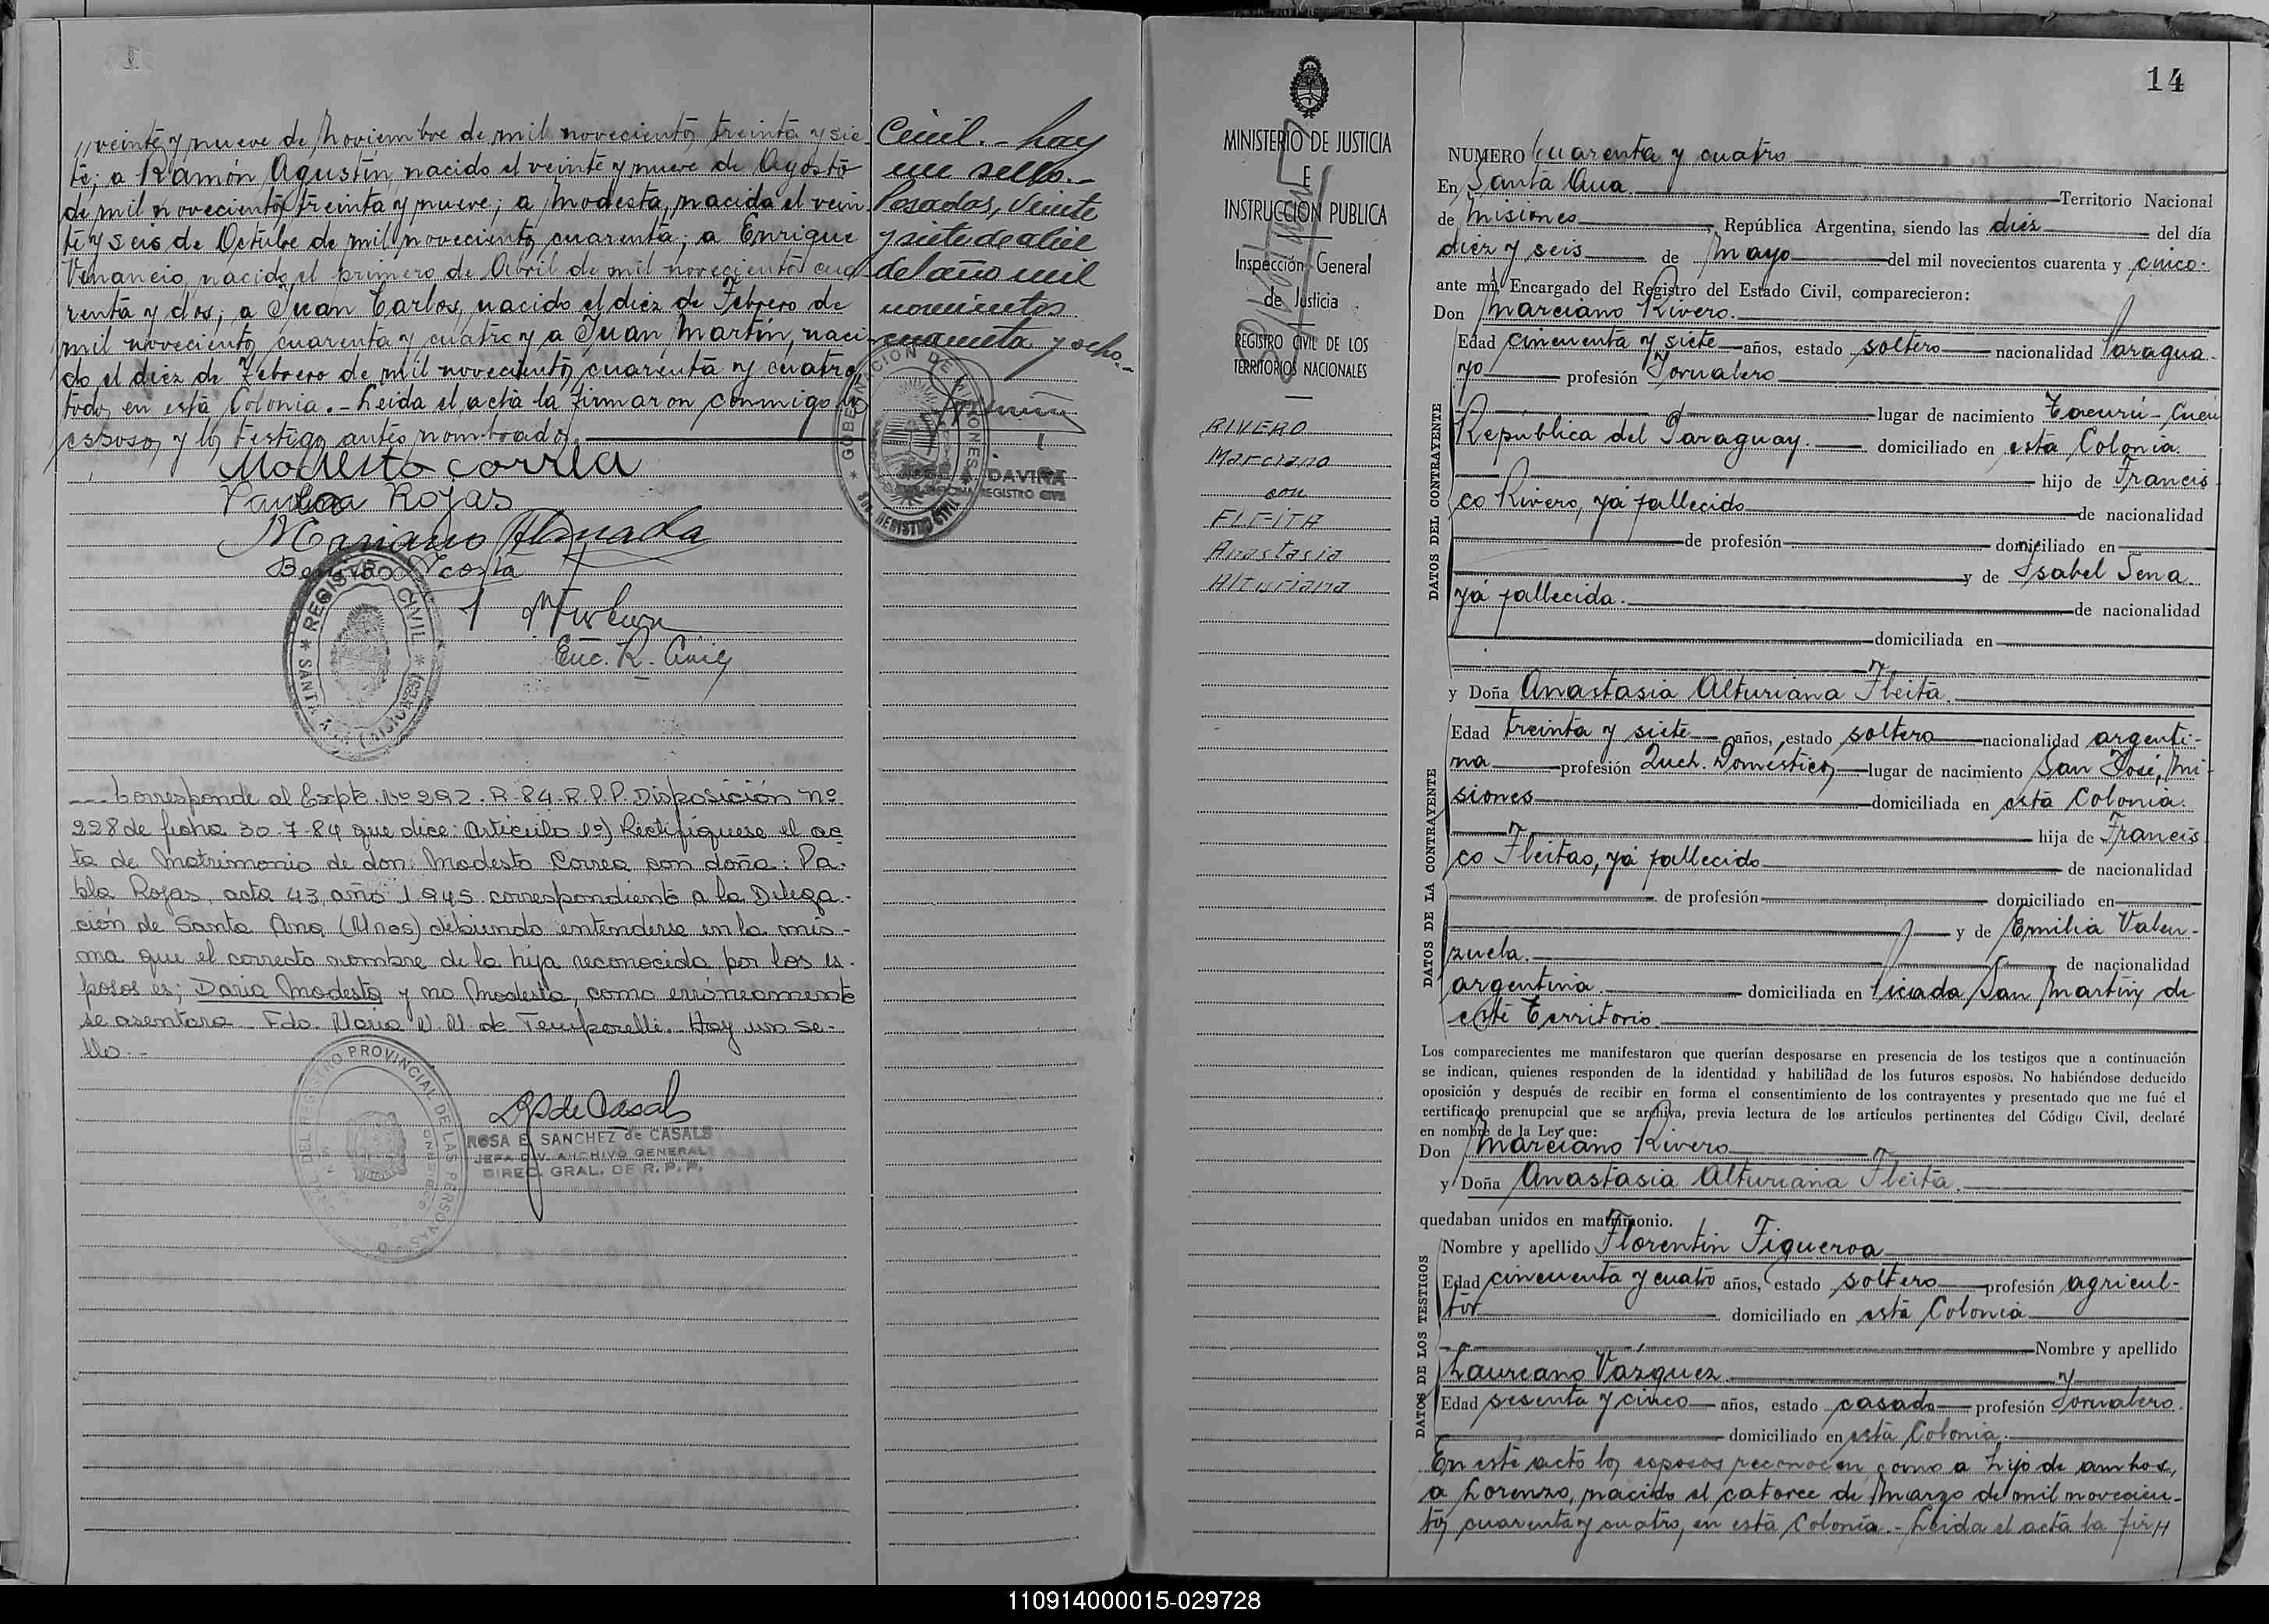 "veinte y nueve de Noviembre de mil novecientos treinta y sie-
te; a Ramón Agustín, nacido el veinte y nueve de Agosto
de mil novecientos treinta y nueve; a Modesta, nacida el vein-
te y seis de Octubre de mil novecientos cuarenta; a Enrique
Venancio, nacido el primero de Abril de mil novecientos cua-
renta y dos; a Juan Carlos, nacido el diez de Febrero de
mil novecientos cuarenta y cuatro y a Juan Martín, naci-
do el diez de Febrero de mil novecientos cuarenta y cuatro,
todos en esta Colonia.- Leida el acta la firmaron conmigo los
esposos y los testigos antes nombrados.
Modesto Correa
Paula Rojas
Mariano Almada
Benito Acosta
Enc. R. Civil
* REGISTRO CIVIL *
SANTA ANA (MISIONES)
Civil.- hay
un sello.-
Posadas, veinte
y siete de abril
del año mil
novecientos
cuarenta y ocho.-
* GOBERNACION DE MISIONES *
DIR. REGISTRO CIVIL
JOSÉ A. DAVIÑA
OFICINA REGISTRO CIVIL
--- Corresponde al Expte. Nº 292. R-84-R.P.P. Disposición nº
228 de fecha 30-7-84 que dice: Artículo 1º) Rectifíquese el ac
ta de Matrimonio de don: Modesto Correa con doña: Pa-
bla Rojas, acta 43, año 1945 correspondiente a la Delega-
ción de Santa Ana (Mnes) debiendo entenderse en la mis-
ma que el correcto nombre de la hija reconocida por los es-
posos es; Daria Modesta y no Modesta, como erróneamente
se asentara. Fdo. Maria N. M. de Temporelli. Hay un se-
llo.-
DEL REGISTRO PROVINCIAL DE LAS PERSONAS
RS de Casals
ROSA E. SANCHEZ de CASALS
JEFA DIV. ARCHIVO GENERAL
DIREC. GRAL. DE R. P. P.
MINISTERIO DE JUSTICIA
E
INSTRUCCIÓN PUBLICA
Inspección General
de Justicia
REGISTRO CIVIL DE LOS
TERRITORIOS NACIONALES
RIVERO
Marciano
con
FLEITA
Anastasia
Alturiana
14
NUMERO Cuarenta y cuatro
En Santa Ana Territorio Nacional
de Misiones, República Argentina, siendo las diez del día
diez y seis de Mayo del mil novecientos cuarenta y cinco.
ante mí, Encargado del Registro del Estado Civil, comparecieron:
Don Marciano Rivero.
DATOS DEL CONTRAYENTE
Edad cincuenta y siete años, estado soltero nacionalidad Paragua-
yo profesión Jornalero
lugar de nacimiento Tacurú-Cuá
República del Paraguay. domiciliado en esta Colonia.
hijo de Francis
co Rivero, ya fallecido de nacionalidad
de profesión domiciliado en
y de Isabel Sena
ya fallecida. de nacionalidad
domiciliada en
y Doña Anastasia Alturiana Fleita.
DATOS DE LA CONTRAYENTE
Edad treinta y siete años, estado soltera nacionalidad argenti-
na profesión Queh. Domésticos lugar de nacimiento San José, Mi-
siones domiciliada en esta Colonia.
hija de Francis
co Fleitas, ya fallecido de nacionalidad
de profesión domiciliado en
y de Emilia Valen-
zuela. de nacionalidad
argentina. domiciliada en Picada San Martin de
este Territorio.
Los comparecientes me manifestaron que querían desposarse en presencia de los testigos que a continuación
se indican, quienes responden de la identidad y habilidad de los futuros esposos. No habiéndose deducido
oposición y después de recibir en forma el consentimiento de los contrayentes y presentado que me fué el
certificado prenupcial que se archiva, previa lectura de los artículos pertinentes del Código Civil, declaré
en nombre de la Ley que:
Don Marciano Rivero
y Doña Anastasia Alturiana Fleita.
quedaban unidos en matrimonio.
DATOS DE LOS TESTIGOS
Nombre y apellido Florentin Figueroa
Edad cincuenta y cuatro años, estado soltero profesión agricul-
tor domiciliado en esta Colonia
Nombre y apellido
Laureano Vázquez
Edad sesenta y cinco años, estado casado profesión Jornalero.
domiciliado en esta Colonia.
En este acto los esposos reconocen como a hijo de ambos,
a Lorenzo, nacido el catorce de Marzo de mil novecien-
tos cuarenta y cuatro, en esta Colonia.- Leida el acta la fir"
110914000015-029728